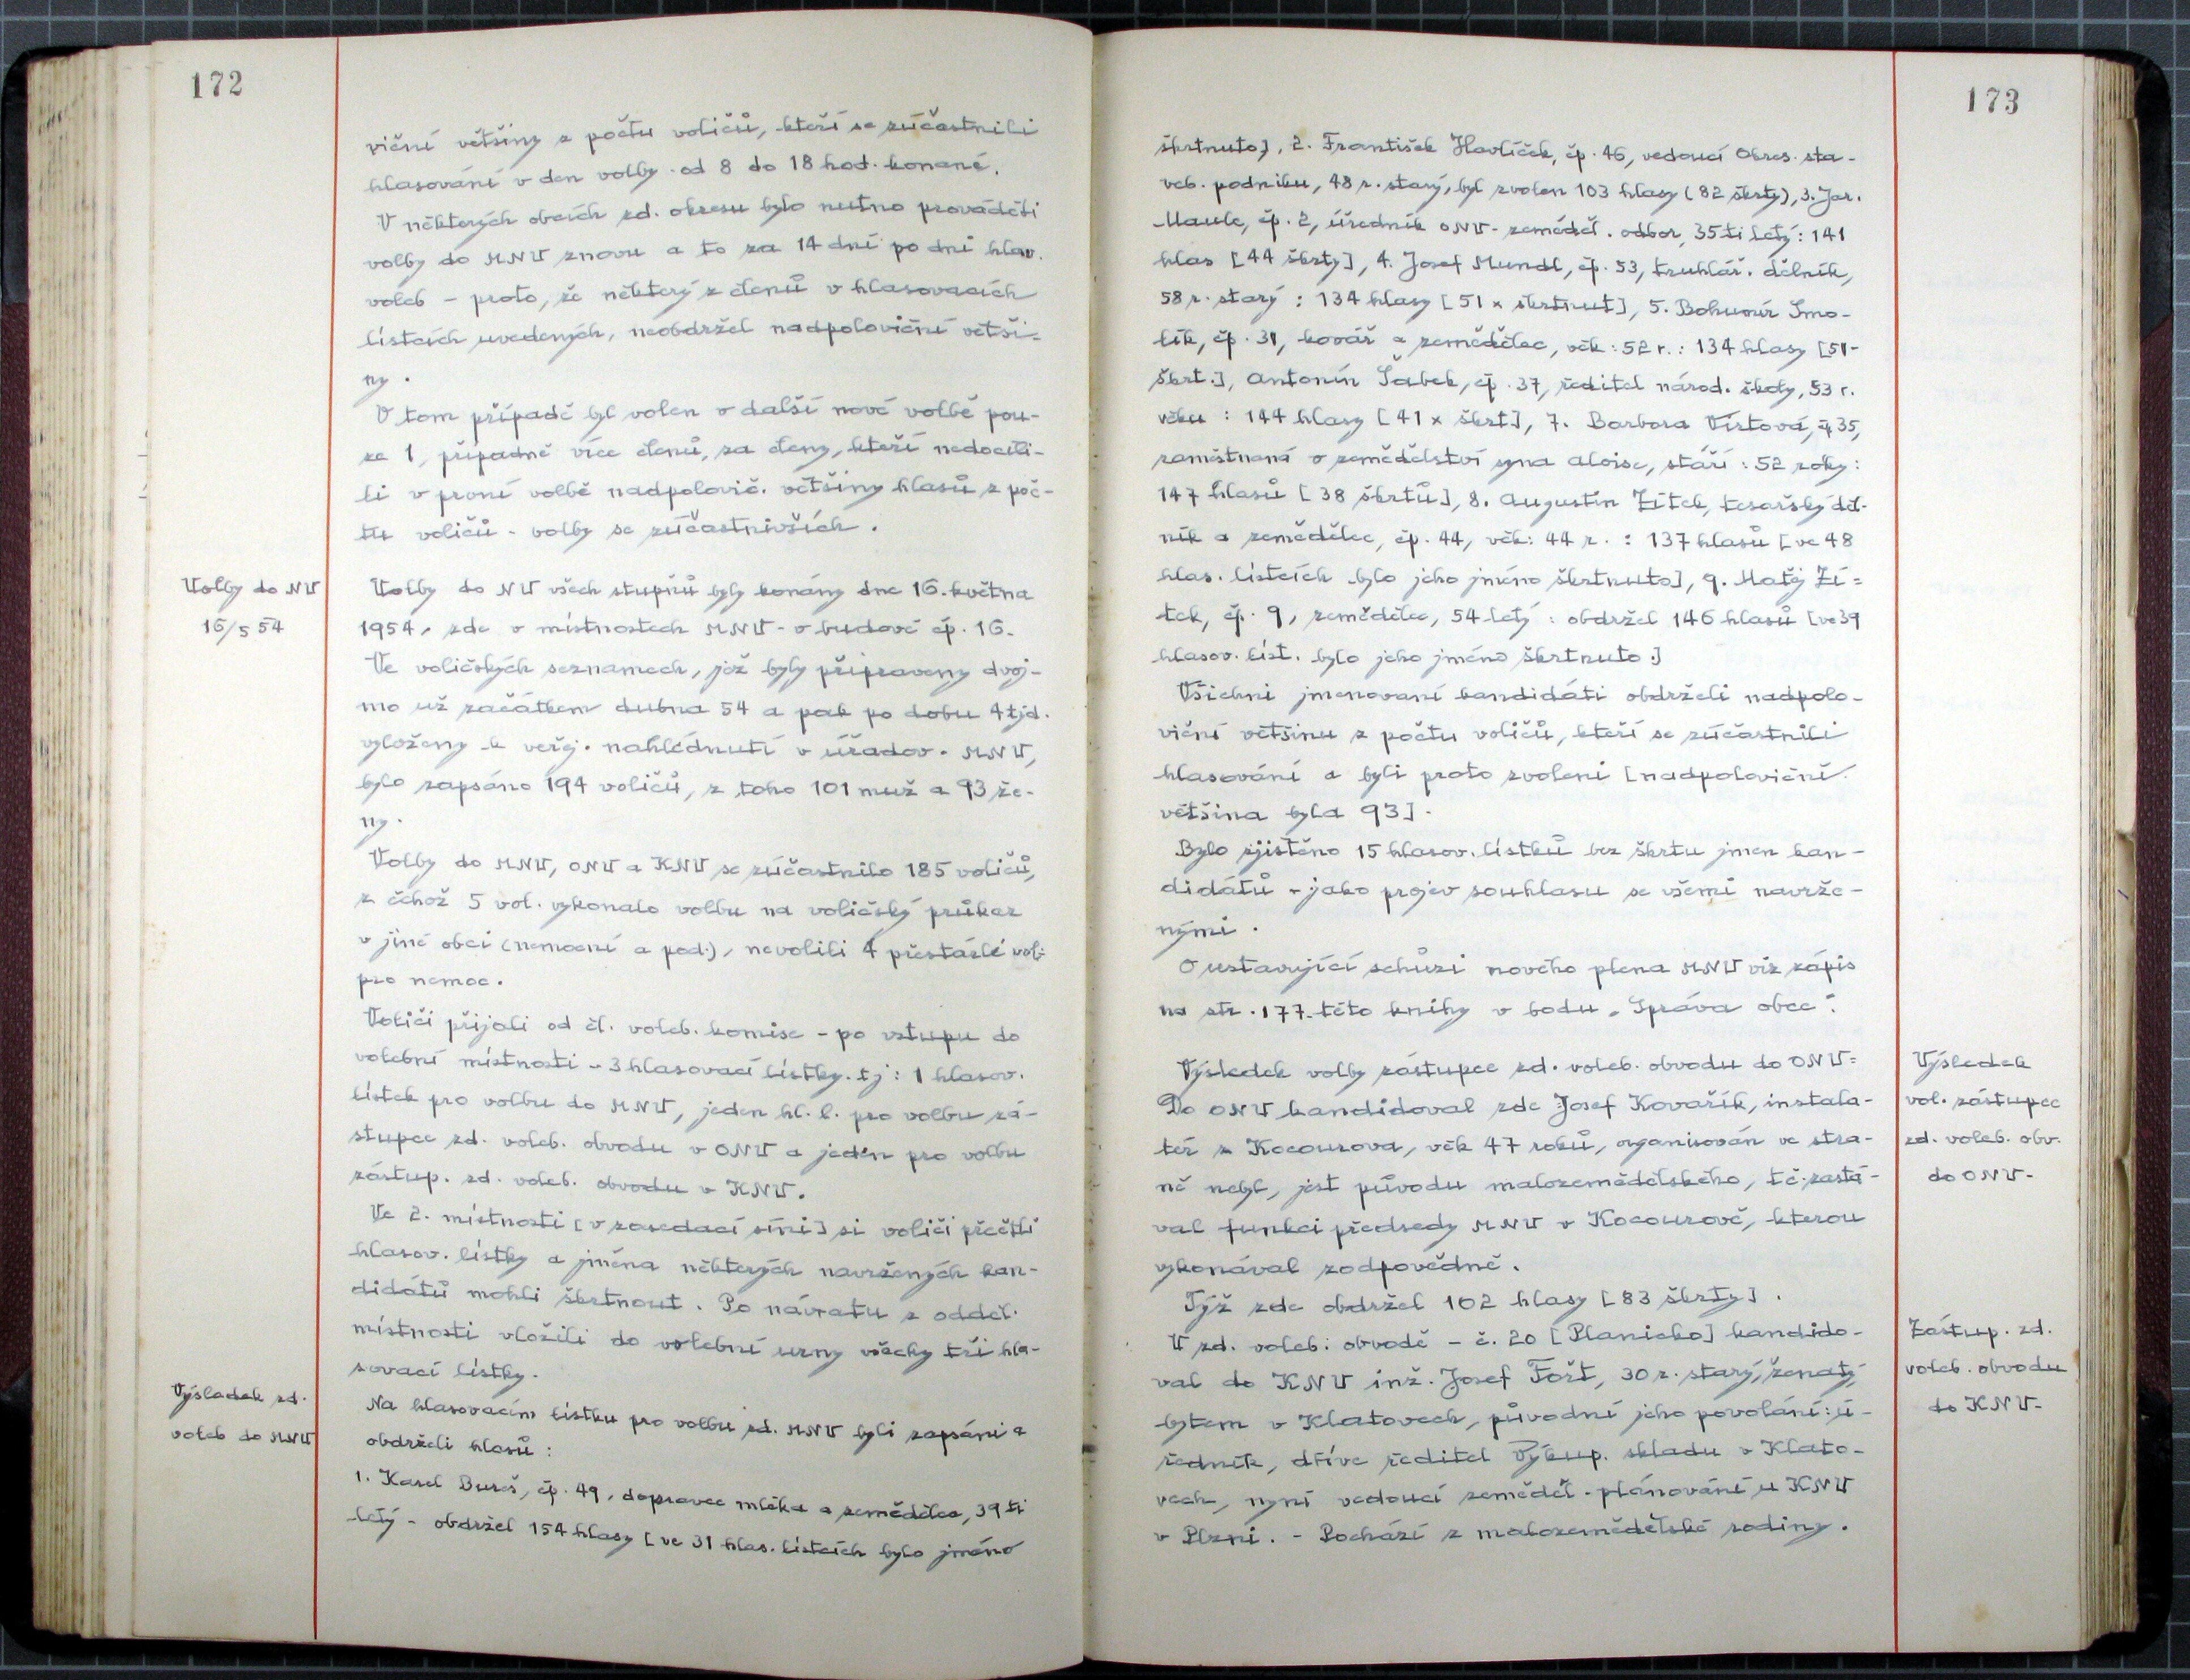 172
viční většiny z počtu voličů, kteří se zúčastnili
hlasování v den volby od 8 do 18 hod. konané.
V některých obcích zd. okresu bylo nutno prováděti
volby do MNV znovu a to za 14 dní po dni hlav.
voleb - proto, že některý z členů v hlasovacích
lístcích uvedených, neobdržel nadpoloviční větši-
ny.
V tom případě byl volen v další nové volbě pou-
ze 1, případně více členů, za členy, kteří nedocíli-
li v první volbě nadpolovič. většiny hlasů z poč-
tu voličů - volby se zúčastnivších.
Volby do NV
16/5 54
Volby do NV všech stupňů byly konány dne 16. května
1954, zde v místnostech MNV - v budově čp. 16.
Ve voličských seznamech, jež byly připraveny dvoj-
mo už začátkem dubna 54 a pak po dobu 4 týd.
vyloženy k veřej. nahlédnutí v úřadov. MNV,
bylo zapsáno 194 voličů, z toho 101 muž a 93 že-
ny.
Volby do MNV, ONV a KNV se zúčastnilo 185 voličů,
z čehož 5 vol. vykonalo volbu na voličský průkaz
v jiné obci (nemocní a pod.), nevolili 4 přestárlé vol.
pro nemoc.
Voliči přijali od čl. voleb. komise - po vstupu do
volební místnosti - 3 hlasovací lístky. tj: 1 hlasov.
lístek pro volbu do MNV, jeden hl. l. pro volbu zá-
stupce zd. voleb. obvodu v ONV a jeden pro volbu
zástup. zd. voleb. obvodu v KNV.
Ve 2. místnosti [v zasedací síni] si voliči přečtli
hlasov. lístky a jména některých navržených kan-
didátů mohli škrtnout. Po návratu z odděl.
místnosti vložili do volební urny všecky tři hla-
sovací lístky.
Výsledek zd.
voleb do MNV
Na hlasovacím lístku pro volbu zd. MNV byli zapsáni a
obdrželi hlasů:
1. Karel Bureš, čp. 49, dopravce mléka a zemědělec, 39 ti
letý - obdržel 154 hlasy [ve 31 hlas. lístcích bylo jméno
173
škrtnuto], 2. František Havlíček, čp. 46, vedoucí Okres. sta-
veb. podniku, 48 r. starý, byl zvolen 103 hlasy (82 škrty), 3. Jar.
Maule, čp. 2, úředník ONV - zeměděl. odbor, 35ti letý: 141
hlas [44 škrty], 4. Josef Mundl, čp. 53, truhlář. dělník,
58 r. starý: 134 hlasy [51 x škrtnut], 5. Bohumír Smo-
lík, čp. 31, kovář a zemědělec, věk: 52 r.: 134 hlasy [51-
škrt.], Antonín Šabek, čp. 37, ředitel národ. školy, 53 r.
věku: 144 hlasy [41 x škrt], 7. Barbora Vírtová, čp 35,
zaměstnaná v zemědělství syna Aloise, stáří: 52 roky:
147 hlasů [38 škrtů], 8. Augustin Žítek, tesařský děl-
ník a zemědělec, čp. 44, věk: 44 r.: 137 hlasů [ve 48
hlas. lístcích bylo jeho jméno škrtnuto], 9. Matěj Ží-
tek, čp. 9, zemědělec, 54 letý: obdržel 146 hlasů [ve 39
hlasov. líst. bylo jeho jméno škrtnuto.]
Všichni jmenovaní kandidáti obdrželi nadpolo-
viční většinu z počtu voličů, kteří se zúčastnili
hlasování a byli proto zvoleni [nadpoloviční
většina byla 93].
Bylo zjištěno 15 hlasov. lístků bez škrtu jmen kan-
didátů - jako projev souhlasu se všemi navrže-
nými.
O ustavující schůzi nového plena MNV viz zápis
na str. 177. této knihy v bodu „Správa obce".
Výsledek
vol. zástupce
zd. voleb. obv.
do ONV-
Výsledek volby zástupce zd. voleb. obvodu do ONV=
Do ONV kandidoval zde Josef Kovařík, instala-
tér z Kocourova, věk 47 roků, organisován ve stra-
ně nebyl, jest původu malozemědělského, t.č. zastá-
val funkci předsedy MNV v Kocourově, kterou
vykonával zodpovědně.
Týž zde obdržel 102 hlasy [83 škrty].
Zástup. zd.
voleb. obvodu
do KNV-
V zd. voleb: obvodě - č. 20 [Planicko] kandido-
val do KNV inž. Josef Fošt, 30 r. starý, ženatý,
bytem v Klatovech, původní jeho povolání: ú-
ředník, dříve ředitel Výkup. skladu v Klato-
vech, nyní vedoucí zeměděl. plánování u KNV
v Plzni. - Pochází z malozemědělské rodiny.